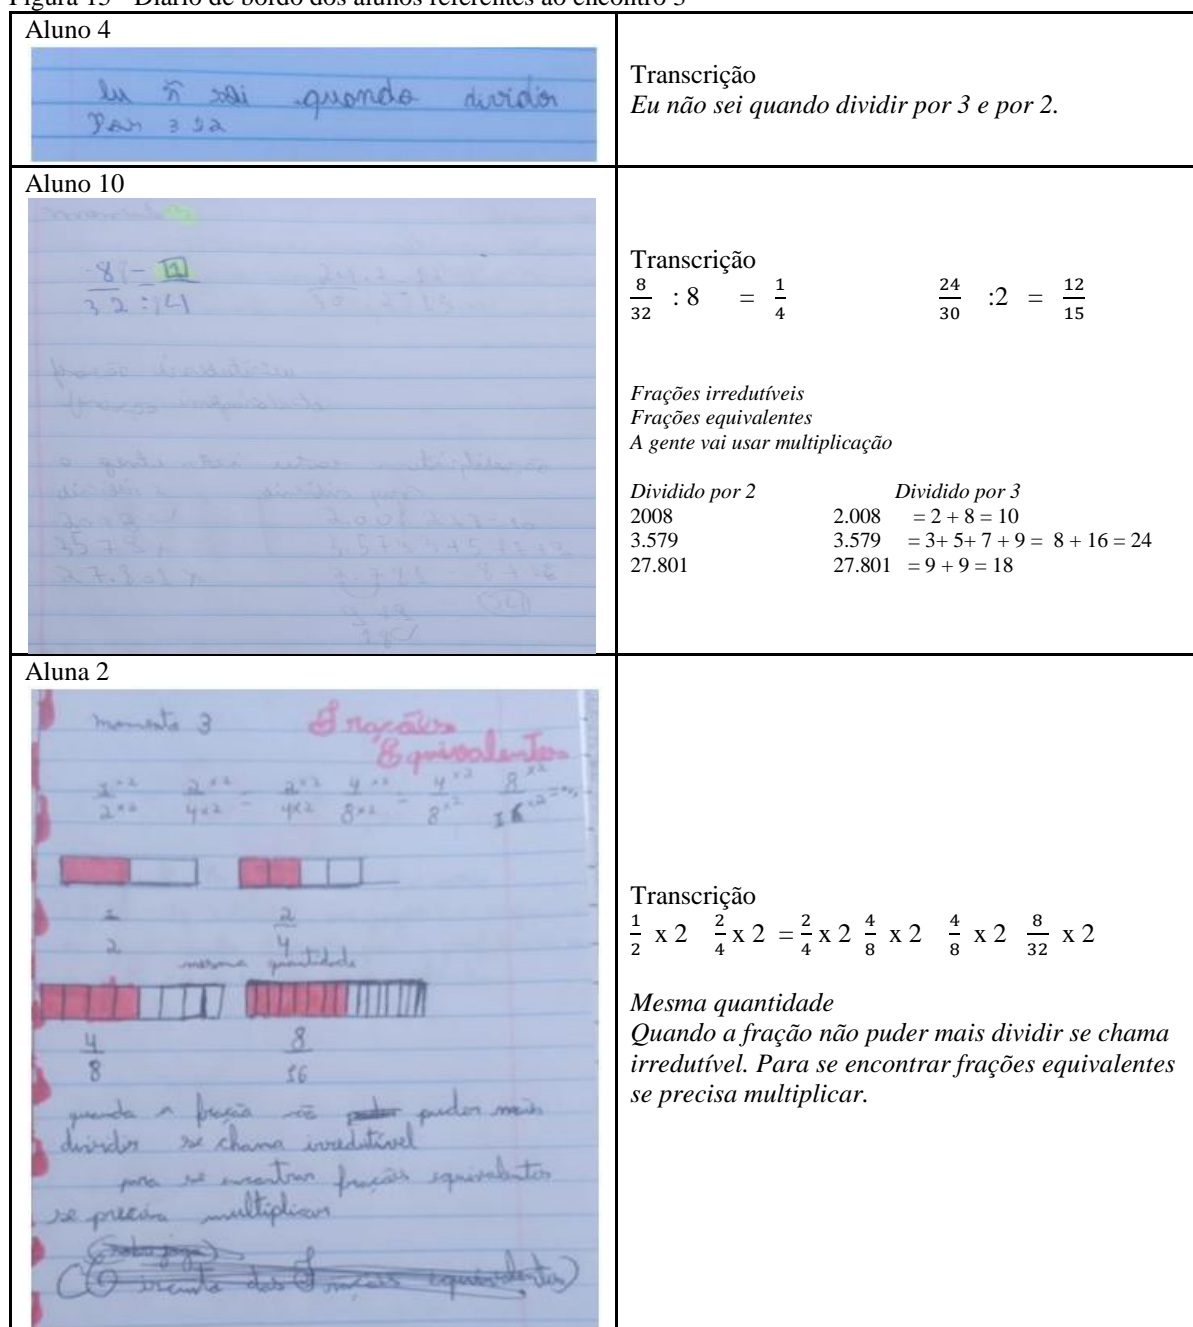 Figura 15 - Diário de bordo dos alunos referentes ao encontro 3
Aluno 4
Eu ñ sei quando dividir
Por 3 e 2
Transcrição
Eu não sei quando dividir por 3 e por 2.
Aluno 10
8 = 1
32 : 4
24
30
a gente vai usar multiplicação
Transcrição
8/32 : 8 = 1/4 24/30 :2 = 12/15
Frações irredutíveis
Frações equivalentes
A gente vai usar multiplicação
Dividido por 2 Dividido por 3
2008 2.008 = 2 + 8 = 10
3.579 3.579 = 3+ 5+ 7 + 9 = 8 + 16 = 24
27.801 27.801 = 9 + 9 = 18
Aluna 2
momento 3 Frações
Equivalentes
1/2 x2 2/4 x2 = 2/4 x2 4/8 x2 = 4/8 x2 8/16 x2 =
1/2 2/4
mesma quantidade
4/8 8/16
quando a fração não puder mais
dividir se chama irredutível
para se encontrar frações equivalentes
se precisa multiplicar
Transcrição
1/2 x 2 2/4 x 2 = 2/4 x 2 4/8 x 2 4/8 x 2 8/32 x 2
Mesma quantidade
Quando a fração não puder mais dividir se chama
irredutível. Para se encontrar frações equivalentes
se precisa multiplicar.